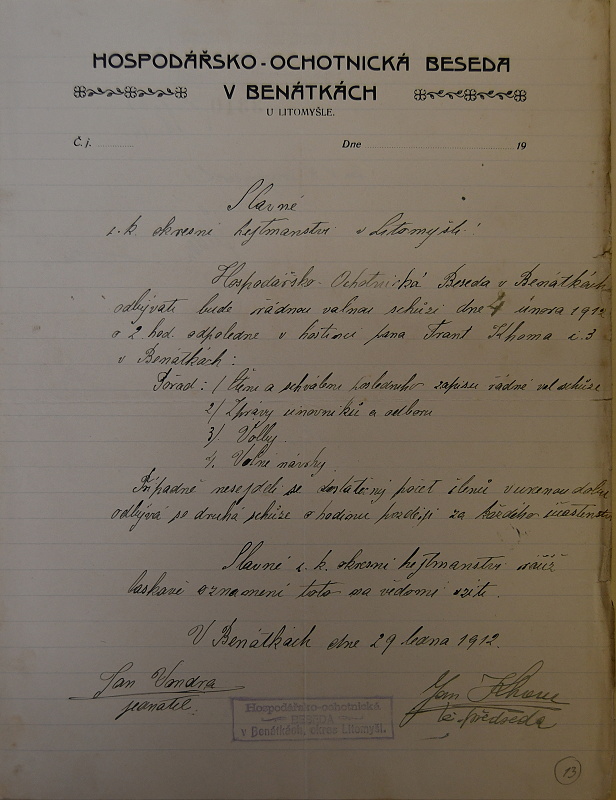 HOSPODÁŘSKO-OCHOTNICKÁ BESEDA
V BENÁTKÁCH
U LITOMYŠLE.
Č. j. Dne 19
Slavné
c.k. okresní hejtmanství v Litomyšli!
Hospodářsko-Ochotnická Beseda v Benátkách
odbývati bude řádnou valnou schůzi dne 4 února 1912
o 2 hod. odpoledne v hostinci pana Frant. č. 3
v Benátkách:
Pořad: 1/ Čtení a schválení posledního zápisu řádné val. schůze
2/ Zprávy činovníků a odboru
3/ Volby.
4. Volné návrhy.
Případně nesejdeli se dostatečný počet členů v určenou dobu
odbývá se druhá schůze o hodinu později za každého
Slavné c. k. okresní hejtmanství račiž
laskavě oznámení toto na vědomí vzíti.
V Benátkách dne 29 ledna 1912.
Jan Vandra
jednatel.
Jan
předseda
Hospodářsko-ochotnická
BESEDA
v Benátkách, okres Litomyšl.
13